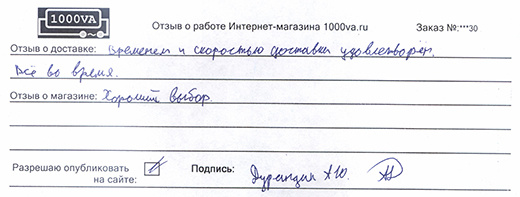 1000VA
Отзыв о работе Интернет-магазина 1000va.ru Заказ №:***30
Отзыв о доставке: Временем и скоростью доставки удовлетворен.
Всё во время.
Отзыв о магазине: Хороший выбор.
Разрешаю опубликовать на сайте: Подпись: А.Ю.